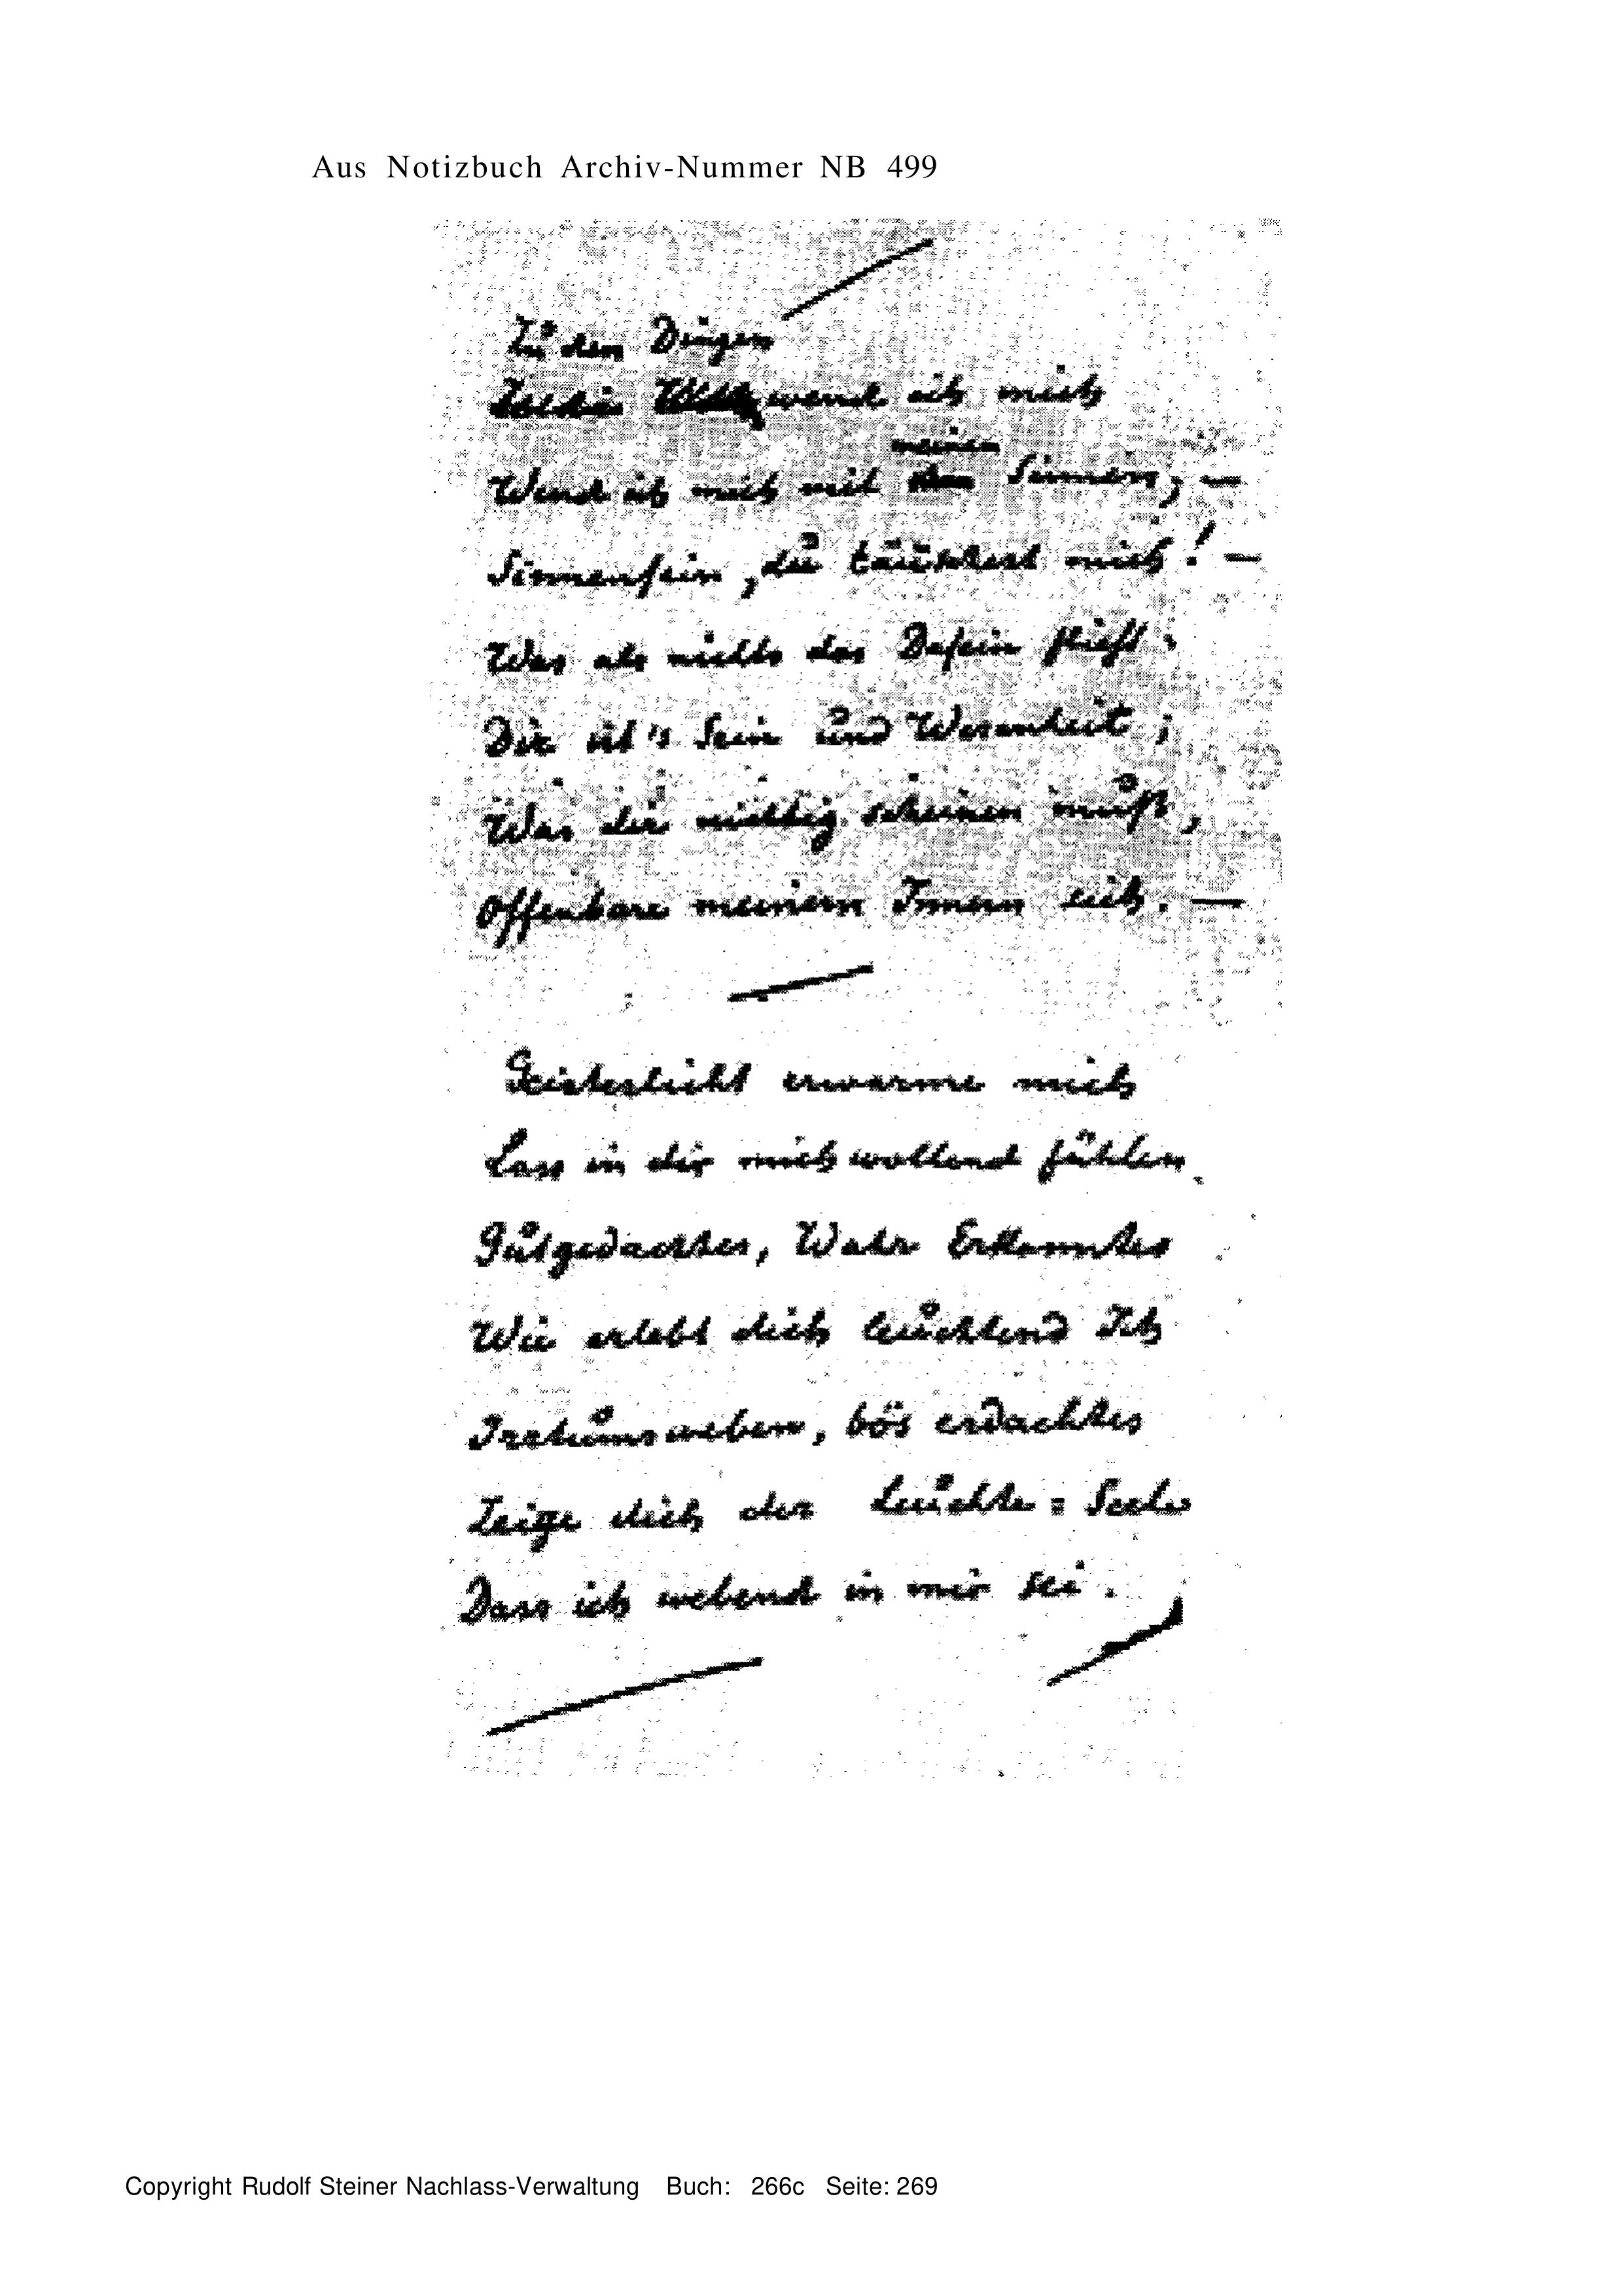 Aus Notizbuch Archiv-Nummer NB 499
Zu den Dingen
wend ich mich
meinen
Wend ich mich mit den Sinnen, —
Sinnensein, du täuschest mich! —
Was als nichts das Dasein flieht:
Dir ist's Sein und Wesenheit;
Was dir nichtig scheinen muß,
Offenbare meinem Innern sich. —
Geisteslicht erwarme mich
Lass in dir mich wollend fühlen.
Gutgedachtes, Wahr Erkanntes
Wie erlebt dich leuchtend Ich
Irrtumsweben, bös erdachtes
Zeige dich der Leuchte=Seele
Dass ich webend in mir sei.
Copyright Rudolf Steiner Nachlass-Verwaltung Buch: 266c Seite: 269